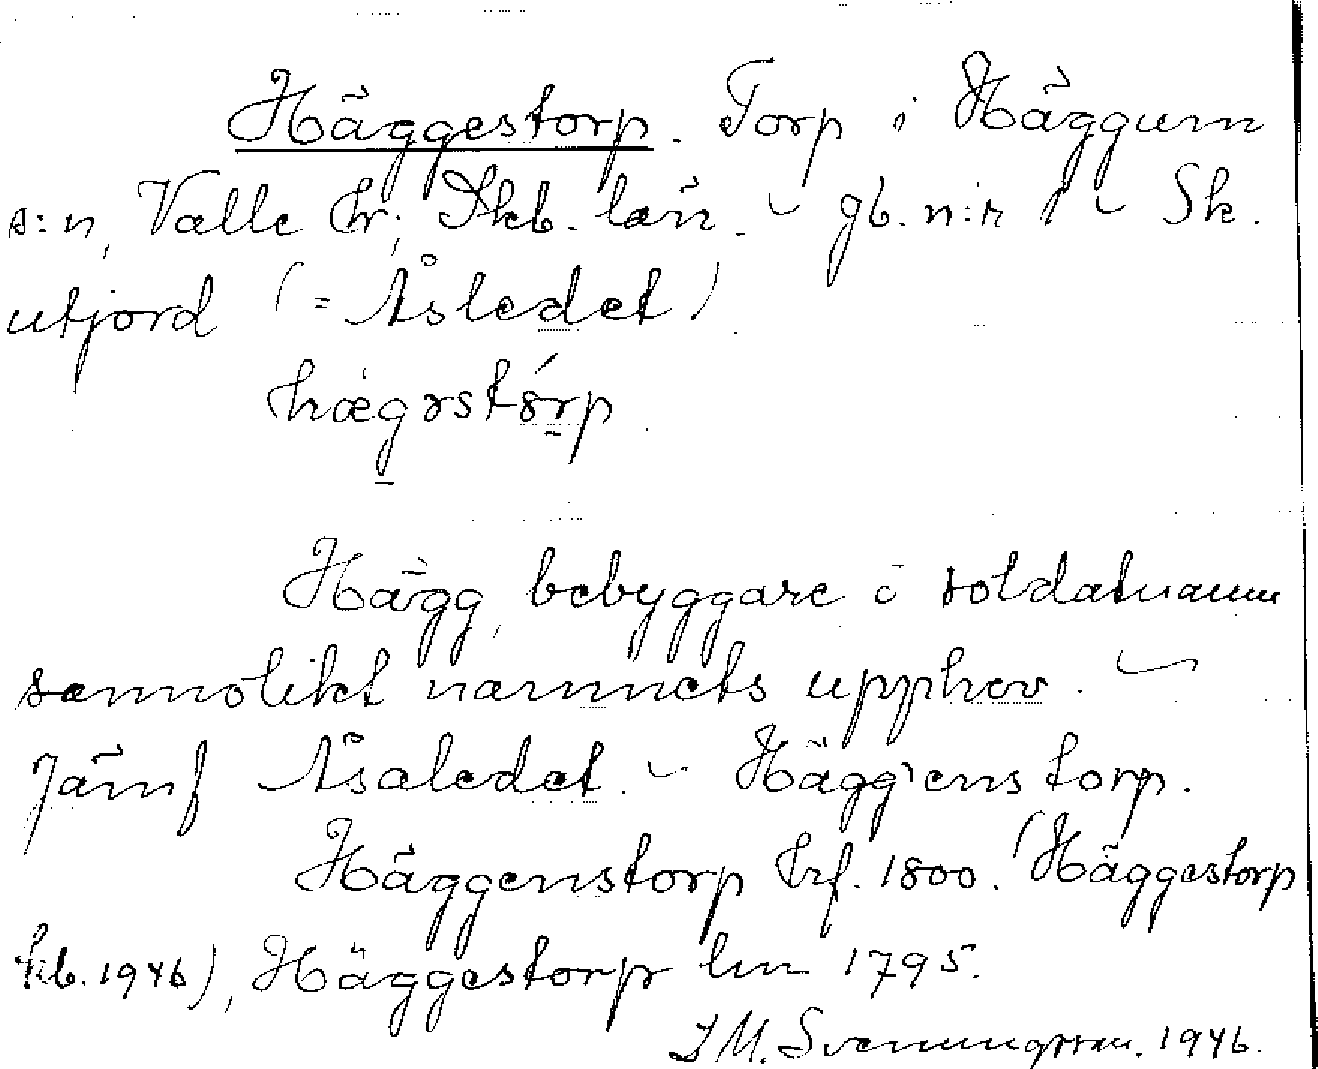 Häggestorp. Torp i Häggum
s:n, Valle hr; Skb. län. – gb. n:r 1 – Sk.
utjord (= Åsledet).
hægəstórp.
Hägg, bebyggare i soldatnamn
sannolikt namnets upphov. –
Jämf Åsaledet. – Häggenstorp.
Häggenstorp hrf. 1800. (Häggestorp
kb. 1946), Häggestorp lm 1795.
I M. Svenungsson. 1946.